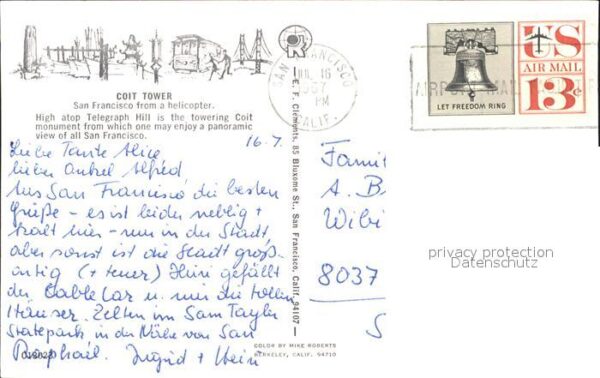 COIT TOWER
San Francisco from a helicopter.
High atop Telegraph Hill is the towering Coit
monument from which one may enjoy a panoramic
view of all San Francisco.
16.7.
Liebe Tante Alice
lieber Onkel Alfred
Aus San Francisco die besten
Grüße - es ist leider neblig +
kalt hier - nur in der Stadt,
aber sonst ist die Stadt groß-
artig (+ teuer) Heini gefällt
der Cable Car u. mir die tollen
Häuser. Zelten im Sam Taylor
Statepark in der Nähe von San
Raphael. Ingrid + Heini
E. F. Clements, 85 Bluxome St., San Francisco, Calif. 94107
COLOR BY MIKE ROBERTS
BERKELEY, CALIF. 94710
SAN FRANCISCO
JUL 16
PM
CALIF.
LET FREEDOM RING
US
AIR MAIL
13c
A. B
Wibi
8037
S
privacy protection
Datenschutz